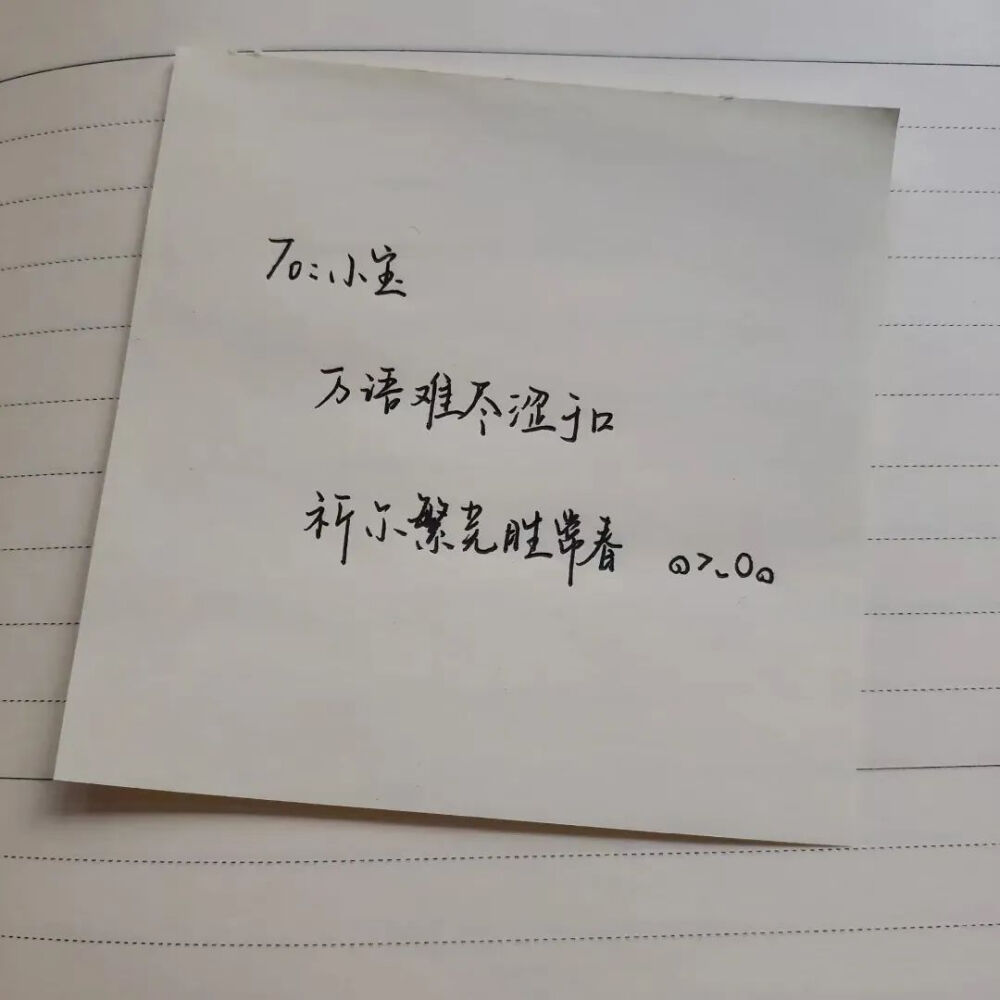 To:小宝
万语难尽涩于口
祈尔繁光胜常春 o>.Oo